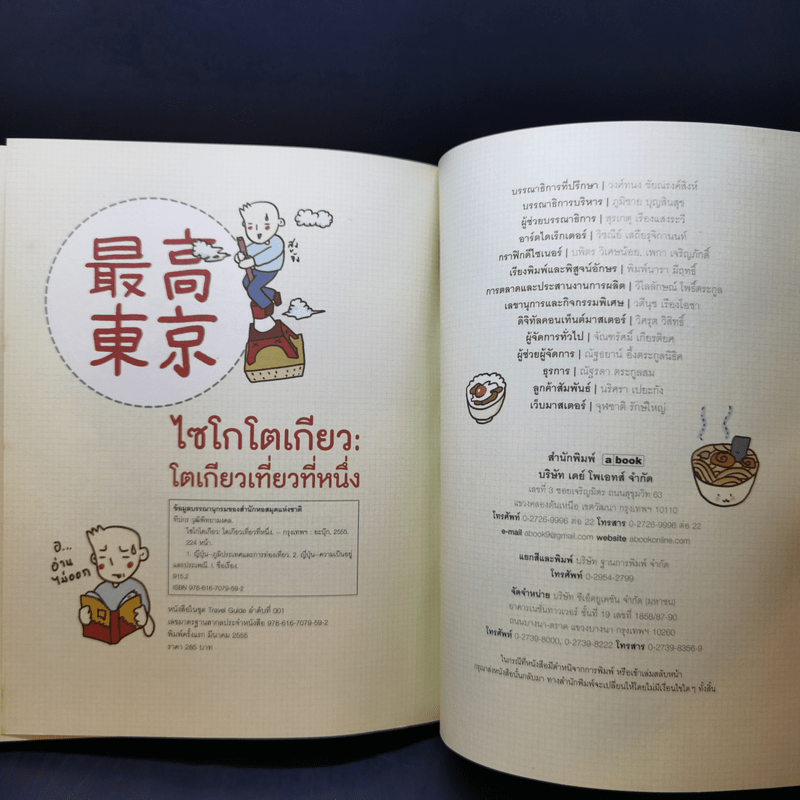 最高
東京
สูง
จัง
ไซโกโตเกียว:
โตเกียวเที่ยวที่หนึ่ง
ข้อมูลบรรณานุกรมของสำนักหอสมุดแห่งชาติ
ทีปกร วุฒิพิทยามงคล.
ไซโกโตเกียว: โตเกียวเที่ยวที่หนึ่ง. – กรุงเทพฯ : อะบุ๊ก, 2555.
224 หน้า.
1. ญี่ปุ่น--ภูมิประเทศและการท่องเที่ยว. 2. ญี่ปุ่น--ความเป็นอยู่
และประเพณี. I. ชื่อเรื่อง.
915.2
ISBN 978-616-7079-59-2
อ่าน
ไม่ออก
หนังสือในชุด Travel Guide ลำดับที่ 001
เลขมาตรฐานสากลประจำหนังสือ 978-616-7079-59-2
พิมพ์ครั้งแรก มีนาคม 2555
ราคา 285 บาท
บรรณาธิการที่ปรึกษา | วงศ์ทนง ชัยณรงค์สิงห์
บรรณาธิการบริหาร | ภูมิชาย บุญสินสุข
ผู้ช่วยบรรณาธิการ | สุรเกตุ เรืองแสงระวี
อาร์ตไดเร็กเตอร์ | วิชณีย์ เสถียรุจิกานนท์
กราฟิกดีไซเนอร์ | บพิตร วิเศษน้อย, เพกา เจริญภักดิ์
เรียงพิมพ์และพิสูจน์อักษร | พิมพ์นารา มีฤทธิ์
การตลาดและประสานงานการผลิต | วิไลลักษณ์ โพธิ์ตระกูล
เลขานุการและกิจกรรมพิเศษ | วดีนุช เรืองโอชา
ดิจิทัลคอนเท็นต์มาสเตอร์ | วิศรุต วิสิทธิ์
ผู้จัดการทั่วไป | จัณฑรัศมิ์ เกียรติยศ
ผู้ช่วยผู้จัดการ | ณัฐธยาน์ อึ้งตระกูลนิธิศ
ธุรการ | ณัฐรดา ตระกูลสม
ลูกค้าสัมพันธ์ | นริศรา เปยะกัง
เว็บมาสเตอร์ | จุฬชาติ รักษ์ใหญ่
สำนักพิมพ์ a book
บริษัท เดย์ โพเอทส์ จำกัด
เลขที่ 3 ซอยเจริญมิตร ถนนสุขุมวิท 63
แขวงคลองตันเหนือ เขตวัฒนา กรุงเทพฯ 10110
โทรศัพท์ 0-2726-9996 ต่อ 22 โทรสาร 0-2726-9996 ต่อ 22
e-mail abook9@gmail.com website abookonline.com
แยกสีและพิมพ์ บริษัท ฐานการพิมพ์ จำกัด
โทรศัพท์ 0-2954-2799
จัดจำหน่าย บริษัท ซีเอ็ดยูเคชั่น จำกัด (มหาชน)
อาคารเนชั่นทาวเวอร์ ชั้นที่ 19 เลขที่ 1858/87-90
ถนนบางนา-ตราด แขวงบางนา กรุงเทพฯ 10260
โทรศัพท์ 0-2739-8000, 0-2739-8222 โทรสาร 0-2739-8356-9
ในกรณีที่หนังสือมีตำหนิจากการพิมพ์ หรือเข้าเล่มสลับหน้า
กรุณาส่งหนังสือนั้นกลับมา ทางสำนักพิมพ์จะเปลี่ยนให้โดยไม่มีเงื่อนไขใดๆ ทั้งสิ้น